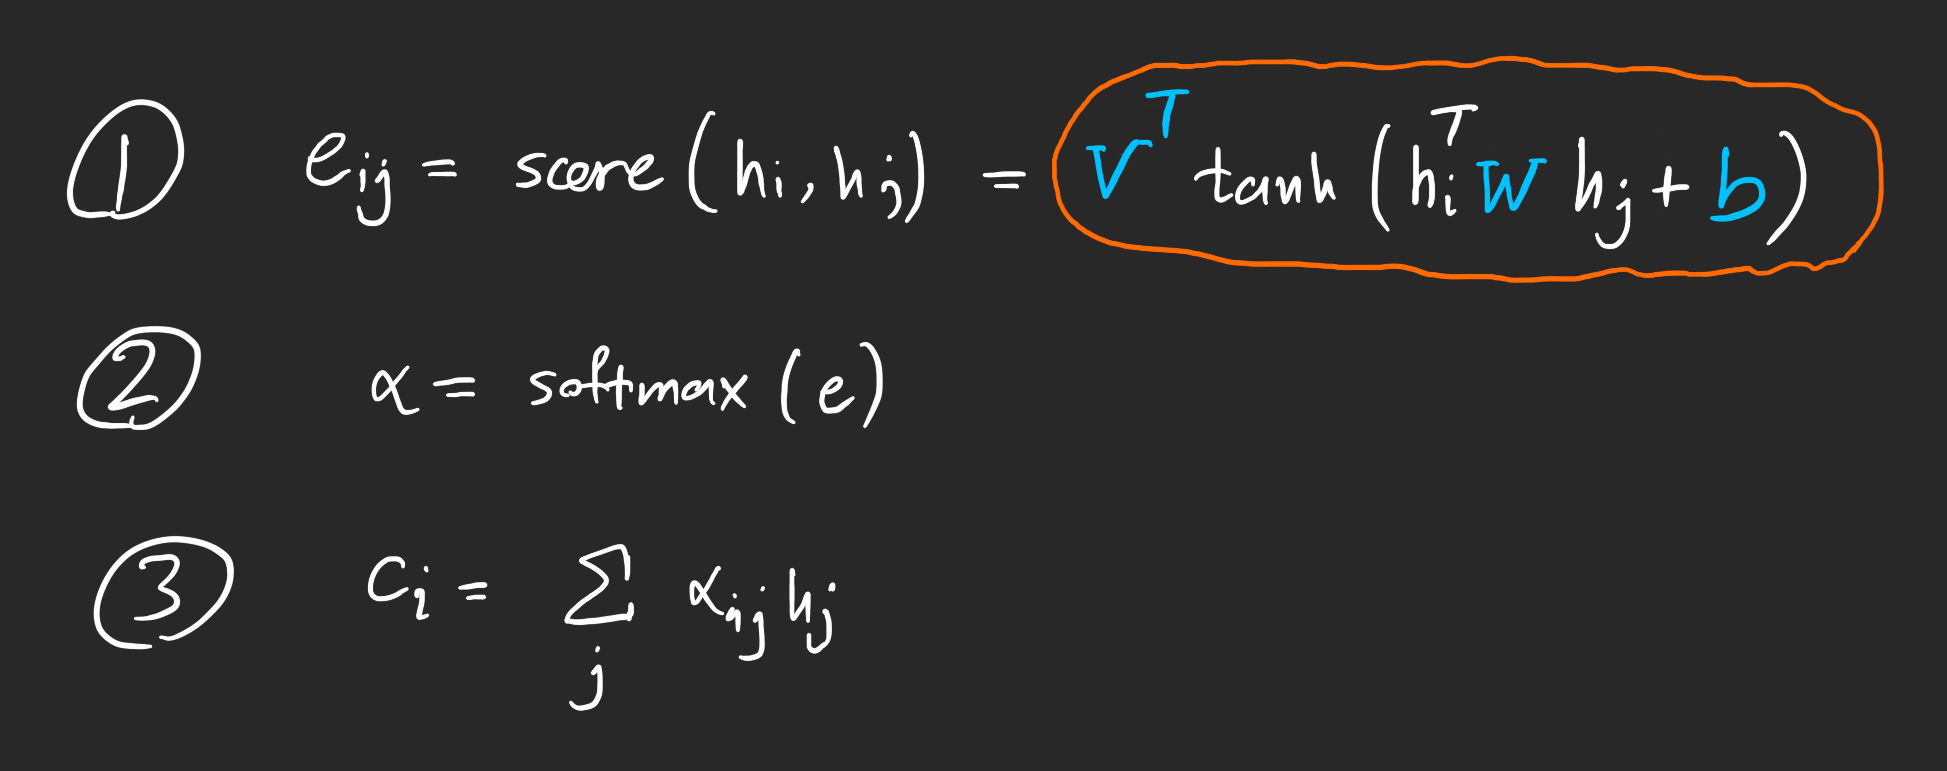 ① e_{ij} = score(h_i, h_j) = V^T tanh(h_i^T W h_j + b)
② α = softmax(e)
③ c_i = Σ_j α_{ij} h_j